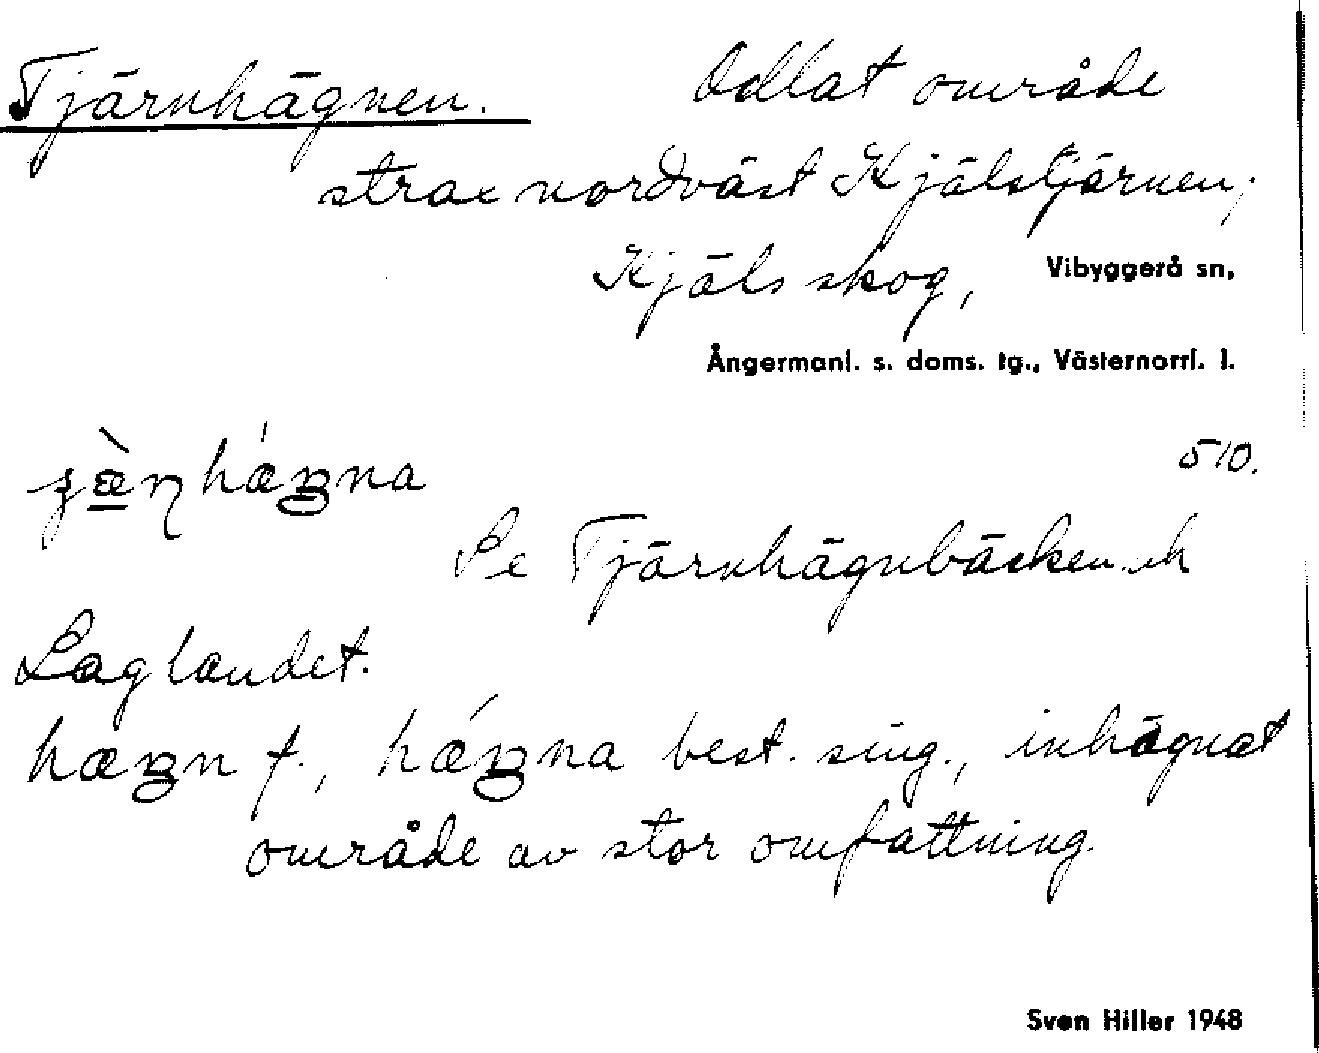 Tjärnhägnen. Odlat område
strax nordväst Kjälstjärnen,
Kjäls skog, Vibyggerå sn,
Ångermanl. s. doms. tg., Västernorrl. l.
510.
Se Tjärnhägnbäcken och
Laglandet.
f., best. sing., inhägnat
område av stor omfattning.
Sven Hiller 1948